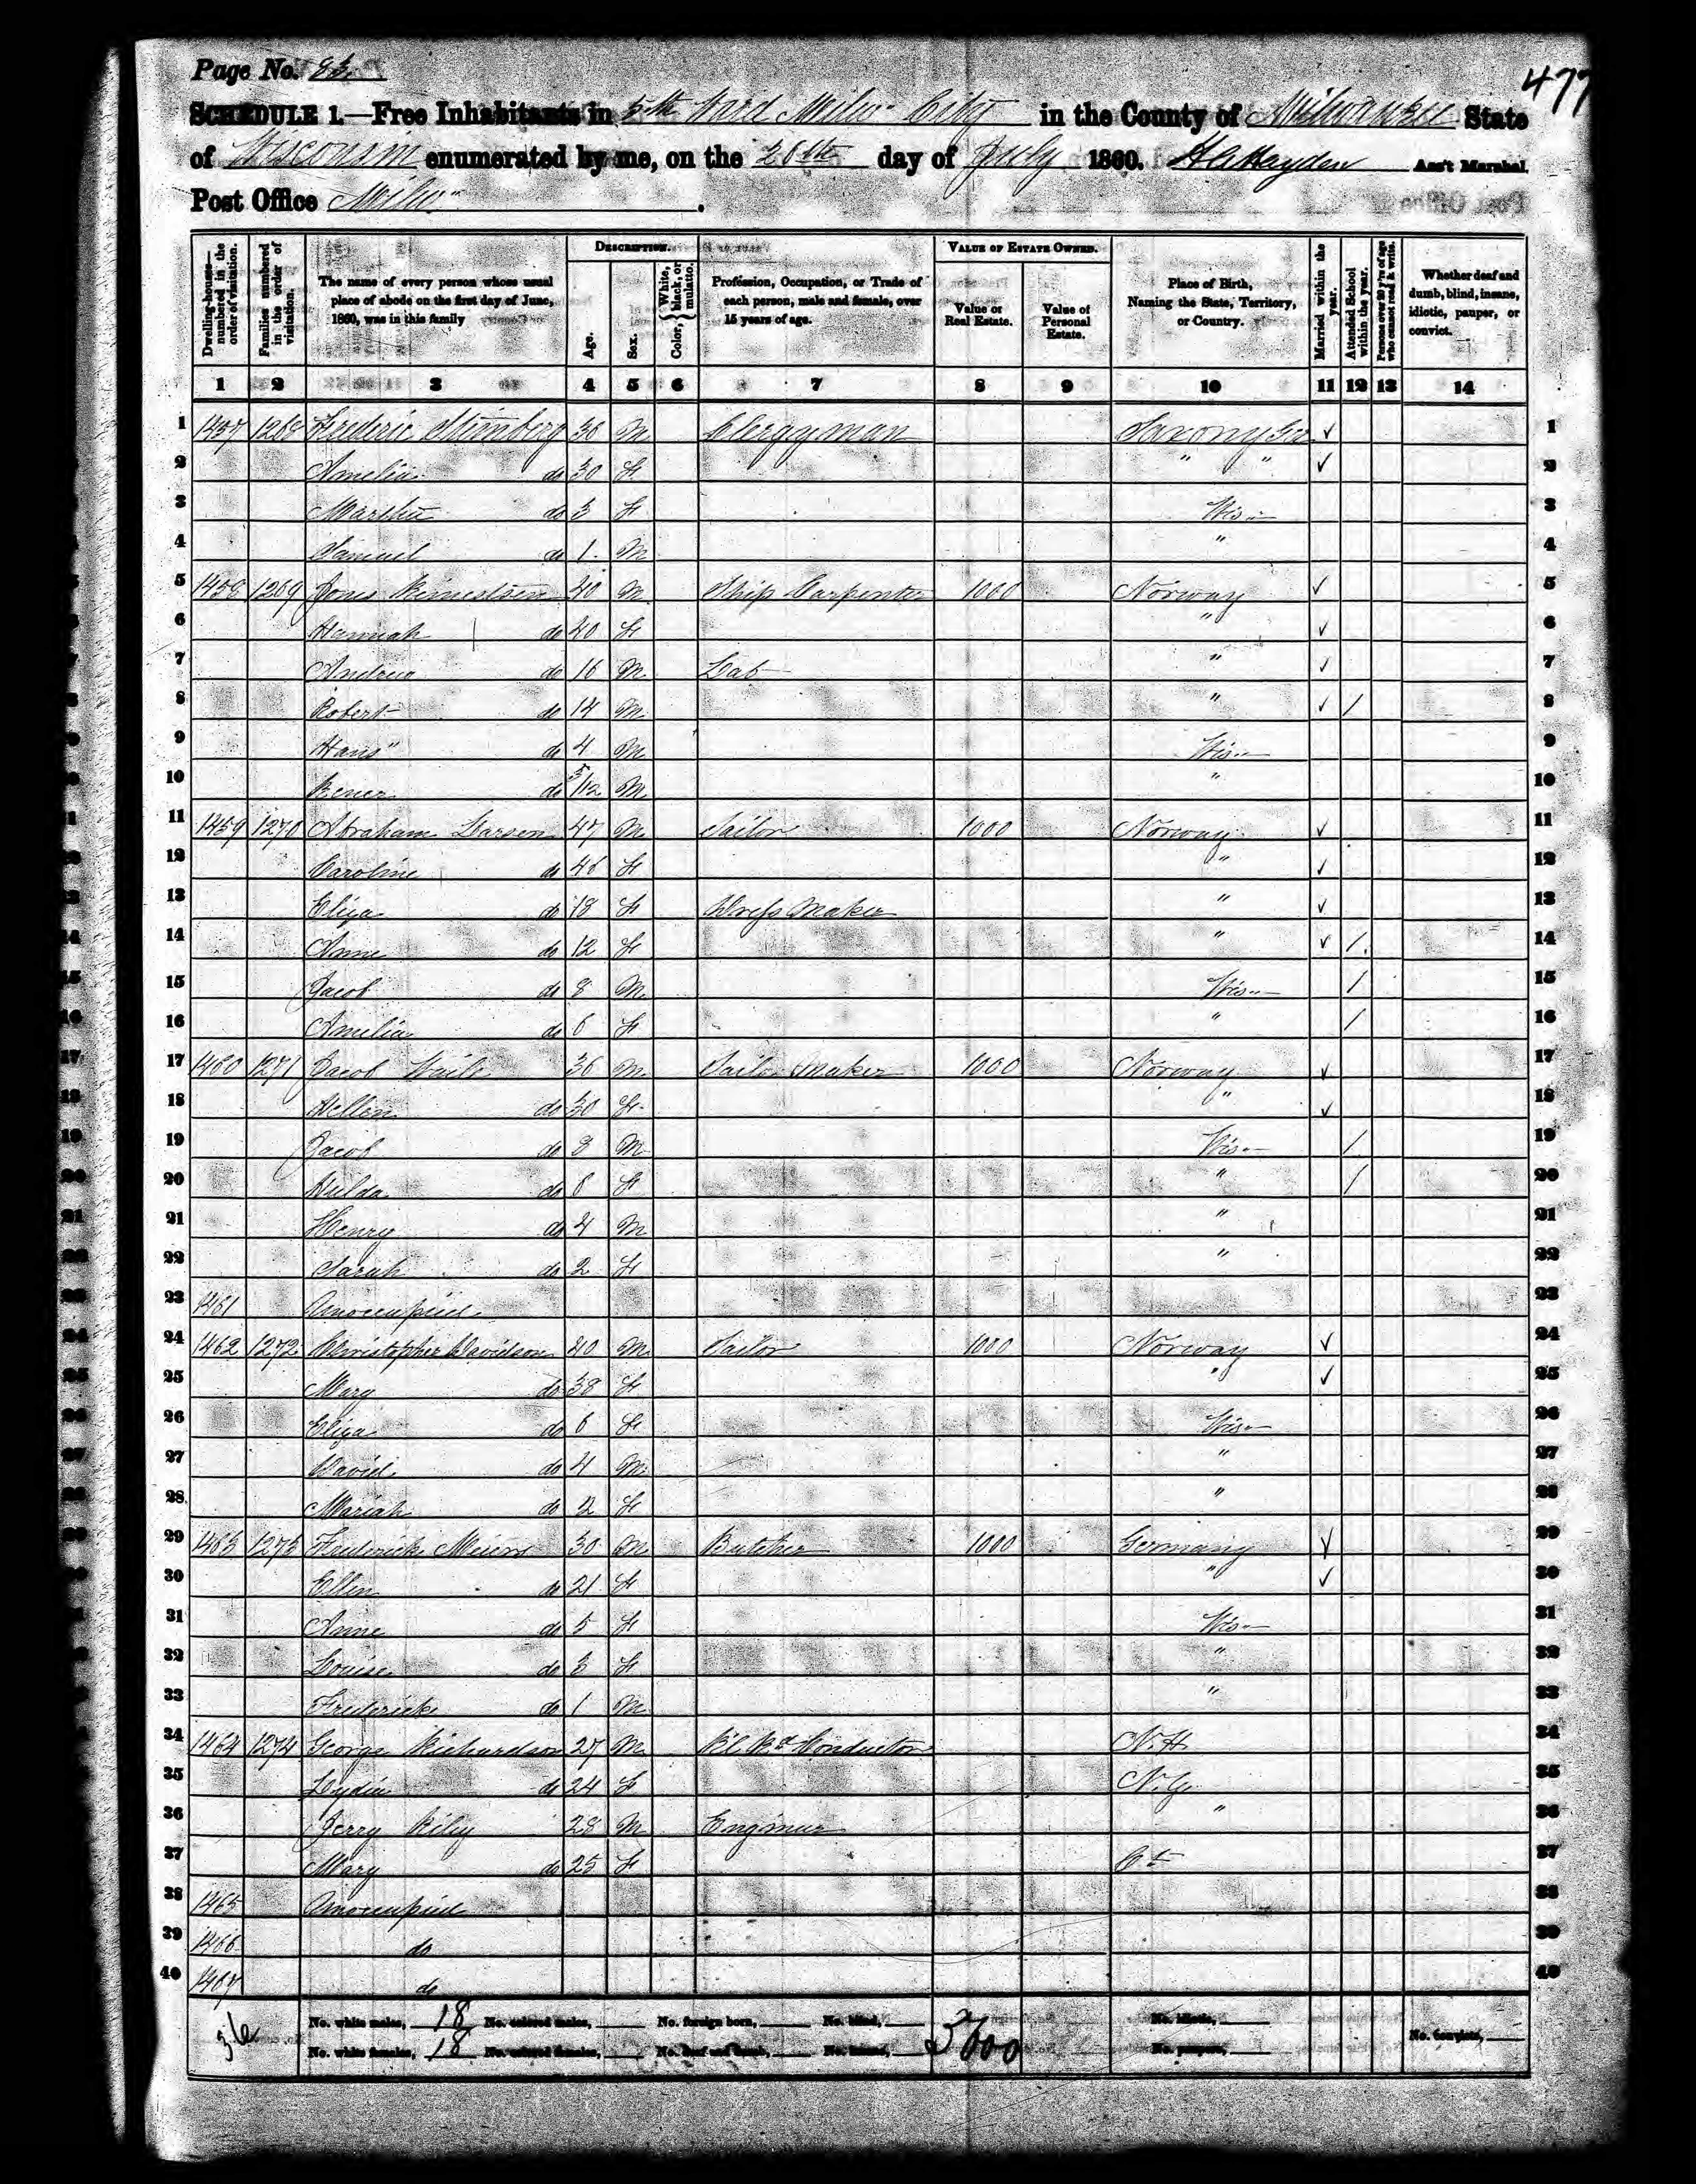 Page No. 83
477
SCHEDULE 1.—Free Inhabitants in 5th Ward Milw. City in the County of Milwaukee State
of Wisconsin enumerated by me, on the 26th day of July 1860. Hayden Ass't Marshal.
Post Office Milw.
DESCRIPTION. VALUE OF ESTATE OWNED.
Dwelling-houses—numbered in the order of visitation. Families numbered in the order of visitation. The name of every person whose usual place of abode on the first day of June, 1860, was in this family Age. Sex. Color, {White, black, or mulatto. Profession, Occupation, or Trade of each person, male and female, over 15 years of age. Value of Real Estate. Value of Personal Estate. Place of Birth, Naming the State, Territory, or Country. Married within the year. Attended School within the year. Persons over 20 y'rs of age who cannot read & write. Whether deaf and dumb, blind, insane, idiotic, pauper, or convict.
1 2 3 4 5 6 7 8 9 10 11 12 13 14
1 1457 1268 Frederic 36 M Clergyman Saxony Ger ✓ 1
2 Amelia do 30 F " " ✓ 2
3 Martha do 3 F Wis 3
4 Samuel do 1 M " 4
5 1458 1269 40 M Ship Carpenter 1000 Norway ✓ 5
6 Hannah do 40 F " ✓ 6
7 Andrew do 16 M Lab " ✓ 7
8 Robert do 14 M " ✓ / 8
9 Hans do 4 M Wis 9
10 do 5/12 M " 10
11 1459 1270 Abraham Larsen 47 M Sailor 1000 Norway ✓ 11
12 Caroline do 46 F " ✓ 12
13 Eliza do 18 F Dress Maker " ✓ 13
14 Anne do 12 F " ✓ / 14
15 Jacob do 8 M Wis / 15
16 Amelia do 6 F " / 16
17 1460 1271 Jacob 36 M Sail Maker 1000 Norway ✓ 17
18 Hellen do 30 F " ✓ 18
19 Jacob do 8 M Wis / 19
20 Hulda do 6 F " / 20
21 Henry do 4 M " 21
22 Sarah do 2 F " 22
23 1461 Unoccupied 23
24 1462 1272 Christopher Davidson 40 M Sailor 1000 Norway ✓ 24
25 Mary do 38 F " ✓ 25
26 Eliza do 6 F Wis 26
27 David do 4 M " 27
28 Mariah do 2 F " 28
29 1463 1273 Frederick 30 M Butcher 1000 Germany ✓ 29
30 Ellen do 21 F " ✓ 30
31 Anne do 5 F Wis 31
32 Louise do 3 F " 32
33 Frederick do 1 M " 33
34 1464 1274 George Richardson 27 M Conductor N.H. 34
35 Lydia do 24 F N.Y. 35
36 Jerry Riley 28 M Engineer " 36
37 Mary do 25 F Ct 37
38 1465 Unoccupied 38
39 1466 do 39
40 1467 do 40
36 No. white males, 18 No. colored males, No. foreign born, No. blind, 5000 No. idiotic,
No. white females, 18 No. colored females, No. deaf and dumb, No. insane, No. paupers, No. convicts,